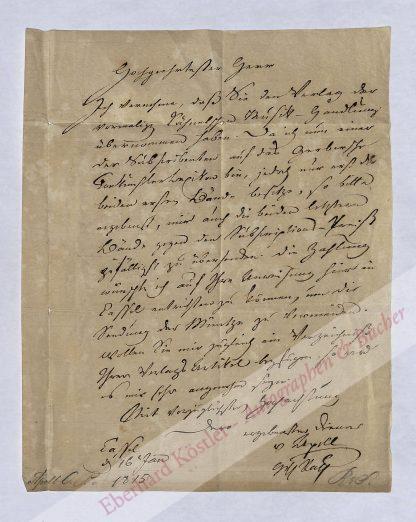 Hochgeehrtester Herr
Ich vernehme, daß Sie den Verlag der
vormalig Kühnelschen Musik-Handlung
übernommen haben. Da ich nun einer
der Subscribenten auf das Gerbersche
Tonkünstler Lexikon bin, jedoch nur erst die
beiden ersten Bände besitze, so bitte
ergebenst, mir auch die beiden letztern
Bände gegen den Subscriptions-Preiß
gefälligst zu übersenden. Die Zahlung
wünschte ich auf Ihre Anweisung hier in
Cassel entrichten zu können, um die
Sendung der Müntze zu vermeiden.
Wollen Sie mir zugleich ein Verzeichniß
Ihrer Verlags Artikel beyfügen, so wird
es mir sehr angenehm seyn.
Mit vorzüglichster Hochachtung
Dero
ergebenster Diener
v Apell
Cassel
d 16 Jan
1815
Eberhard Köstler · Autographen & Bücher